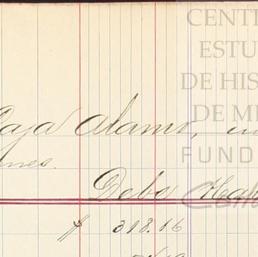 CENT
ESTU
DE HIS
DE M
FUND
Caja Alamo, en
nes.
Debe Hab
$ 318.16